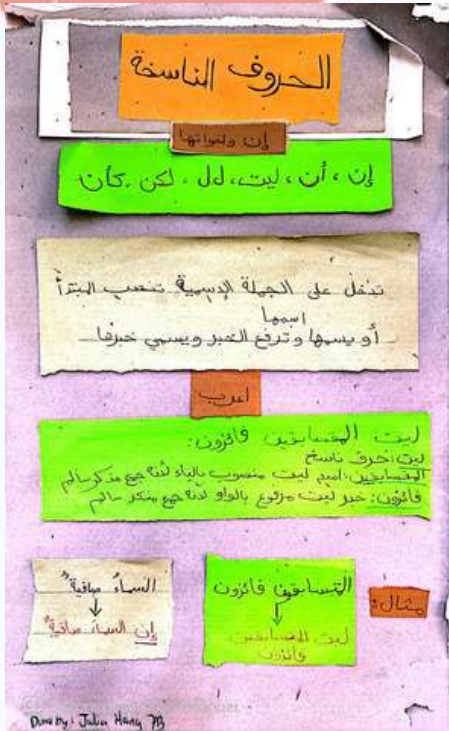 الحروف الناسخة
إن واخواتها
إن ، أن ، ليت ، لعل ، لكن . كأن
تدخل على الجملة الإسمية تنصب المبتدأ
اسمها
أو يسمها وترفع الخبر ويسمي خبرها
اعرب
ليت المتسابقين فائزون:
ليت: حرف ناسخ
المتسابقين: اسم ليت منصوب بالياء لأنه جمع مذكر سالم
فائزون: خبر ليت مرفوع بالواو لأنه جمع مذكر سالم
مثال:
المتسابقين فائزون
ليت المتسابقين
فائزون
السماءُ صافيةٌ
إن السماءَ صافيةٌ
Done by: Julia Hany 7B